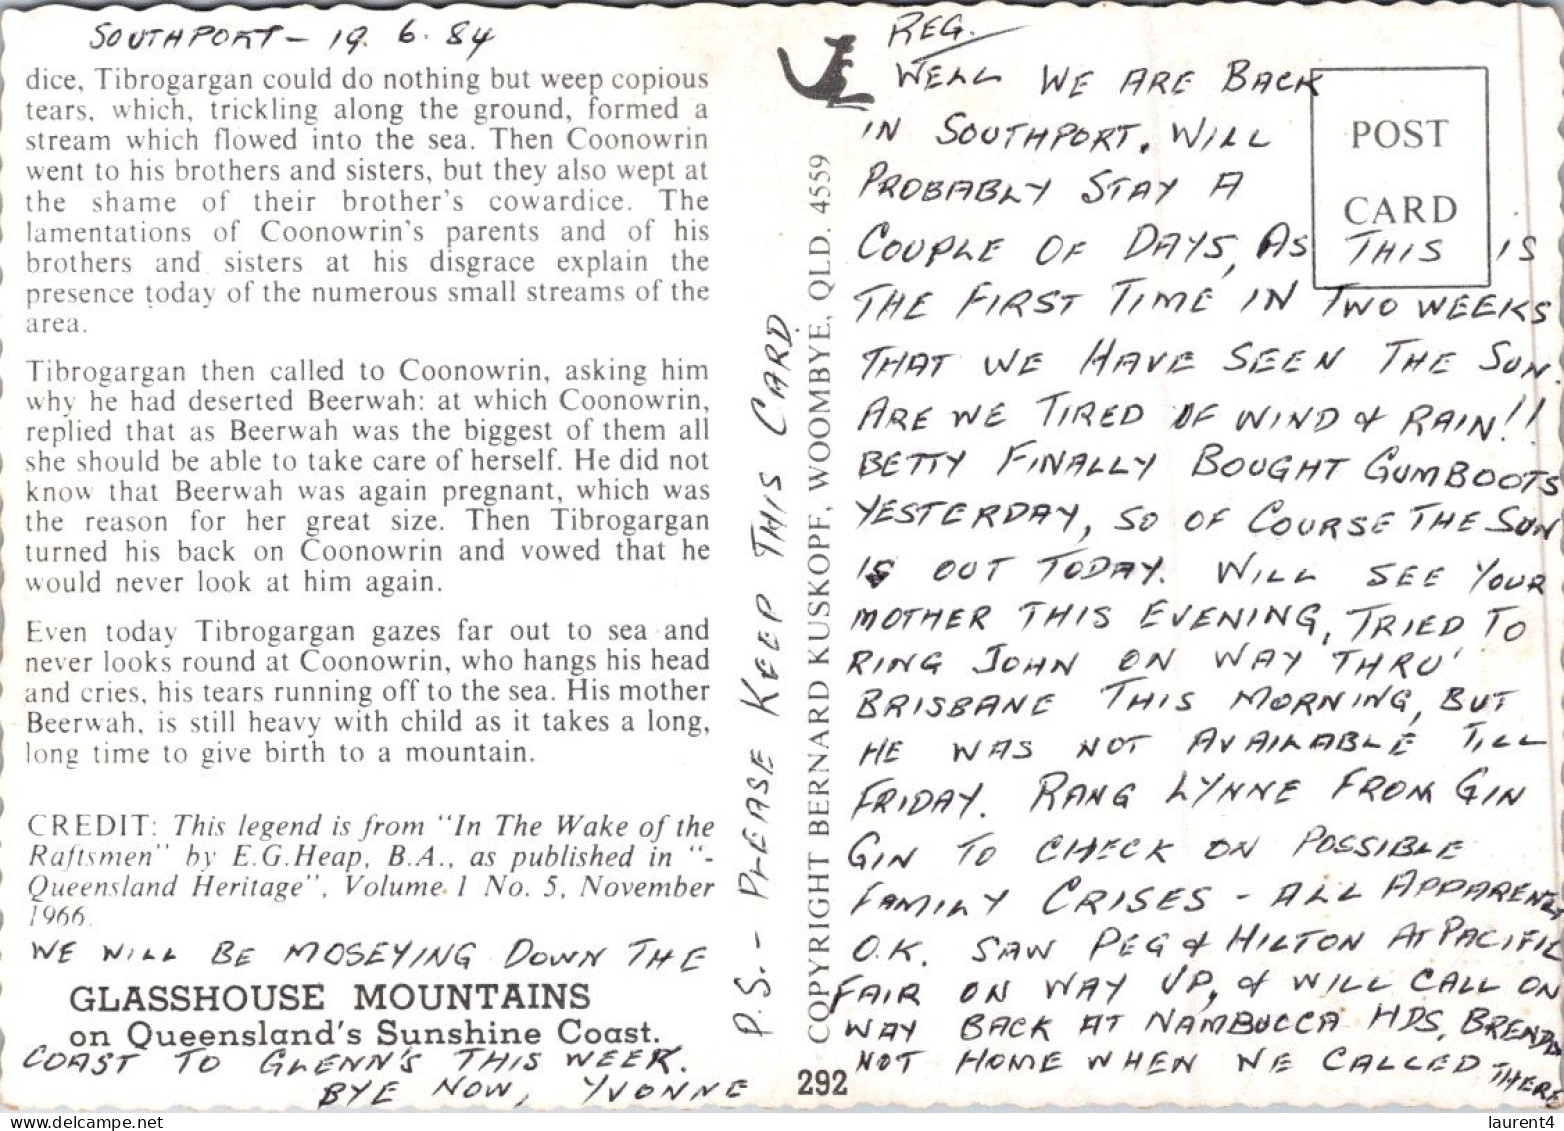 SOUTHPORT - 19. 6. 84
dice, Tibrogargan could do nothing but weep copious
tears, which, trickling along the ground, formed a
stream which flowed into the sea. Then Coonowrin
went to his brothers and sisters, but they also wept at
the shame of their brother's cowardice. The
lamentations of Coonowrin's parents and of his
brothers and sisters at his disgrace explain the
presence today of the numerous small streams of the
area.
Tibrogargan then called to Coonowrin, asking him
why he had deserted Beerwah: at which Coonowrin,
replied that as Beerwah was the biggest of them all
she should be able to take care of herself. He did not
know that Beerwah was again pregnant, which was
the reason for her great size. Then Tibrogargan
turned his back on Coonowrin and vowed that he
would never look at him again.
Even today Tibrogargan gazes far out to sea and
never looks round at Coonowrin, who hangs his head
and cries, his tears running off to the sea. His mother
Beerwah, is still heavy with child as it takes a long,
long time to give birth to a mountain.
CREDIT: This legend is from "In The Wake of the
Raftsmen" by E.G.Heap, B.A., as published in "-
Queensland Heritage", Volume 1 No. 5, November
1966.
WE WILL BE MOSEYING DOWN THE
GLASSHOUSE MOUNTAINS
on Queensland's Sunshine Coast.
COAST TO GLENN'S THIS WEEK.
BYE NOW, YVONNE
P.S. - PLEASE KEEP THIS CARD
COPYRIGHT BERNARD KUSKOPF, WOOMBYE, QLD. 4559
292
POST
CARD
REG.
WELL WE ARE BACK
IN SOUTHPORT. WILL
PROBABLY STAY A
COUPLE OF DAYS, AS THIS IS
THE FIRST TIME IN TWO WEEKS
THAT WE HAVE SEEN THE SUN.
ARE WE TIRED OF WIND & RAIN!!
BETTY FINALLY BOUGHT GUMBOOTS
YESTERDAY, SO OF COURSE THE SUN
IS OUT TODAY. WILL SEE YOUR
MOTHER THIS EVENING, TRIED TO
RING JOHN ON WAY THRU'
BRISBANE THIS MORNING, BUT
HE WAS NOT AVAILABLE TILL
FRIDAY. RANG LYNNE FROM GIN
GIN TO CHECK ON POSSIBLE
FAMILY CRISES - ALL APPARENTLY
O.K. SAW PEG & HILTON AT PACIFIC
FAIR ON WAY UP, & WILL CALL ON
WAY BACK AT NAMBUCCA HDS, BRENDA
NOT HOME WHEN WE CALLED THERE
laurent4